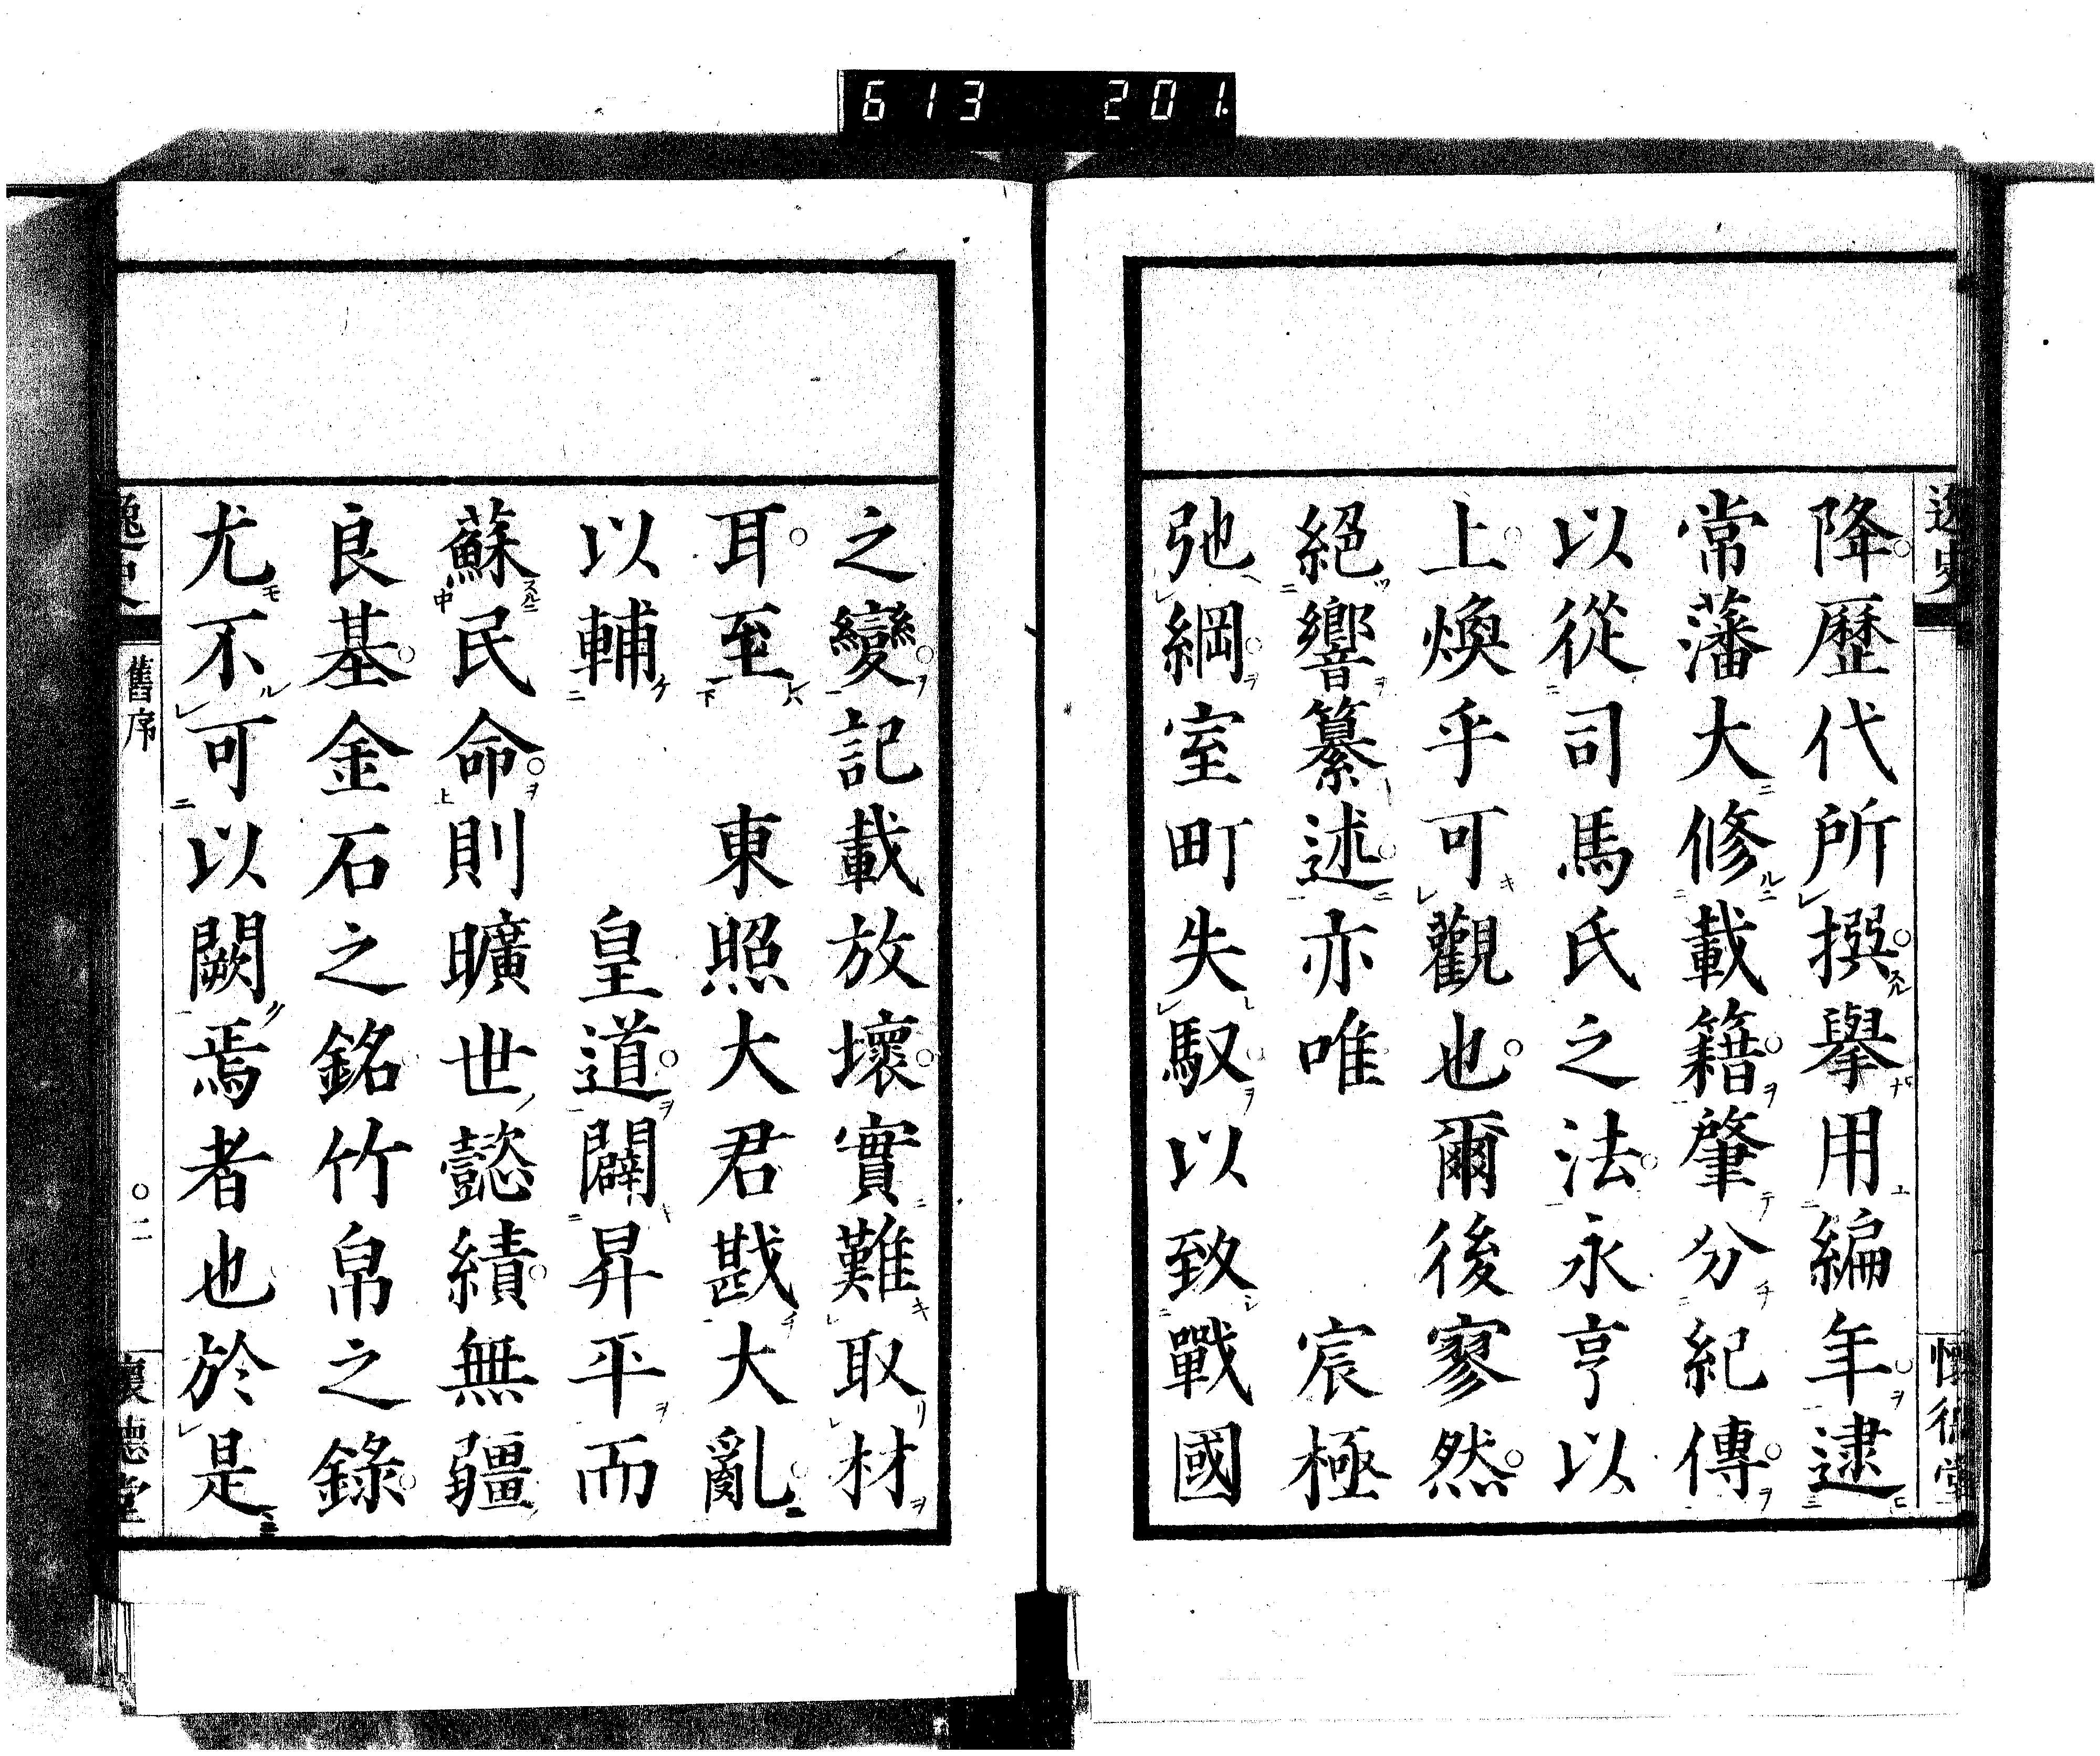 613 201
逸史
懷德堂
降歷代所撰擧用編年逮
常藩大修載籍肇分紀傳
以從司馬氏之法永亨以
上煥乎可觀也爾後寥然
絕響纂述亦唯 宸極
弛綱室町失馭以致戰國
之變記載放壞實難取材
耳至 東照大君戡大亂
以輔 皇道闢昇平而
蘇民命則曠世懿績無疆
良基金石之銘竹帛之錄
尤不可以闕焉者也於是
逸史
舊序
〇二
懷德堂